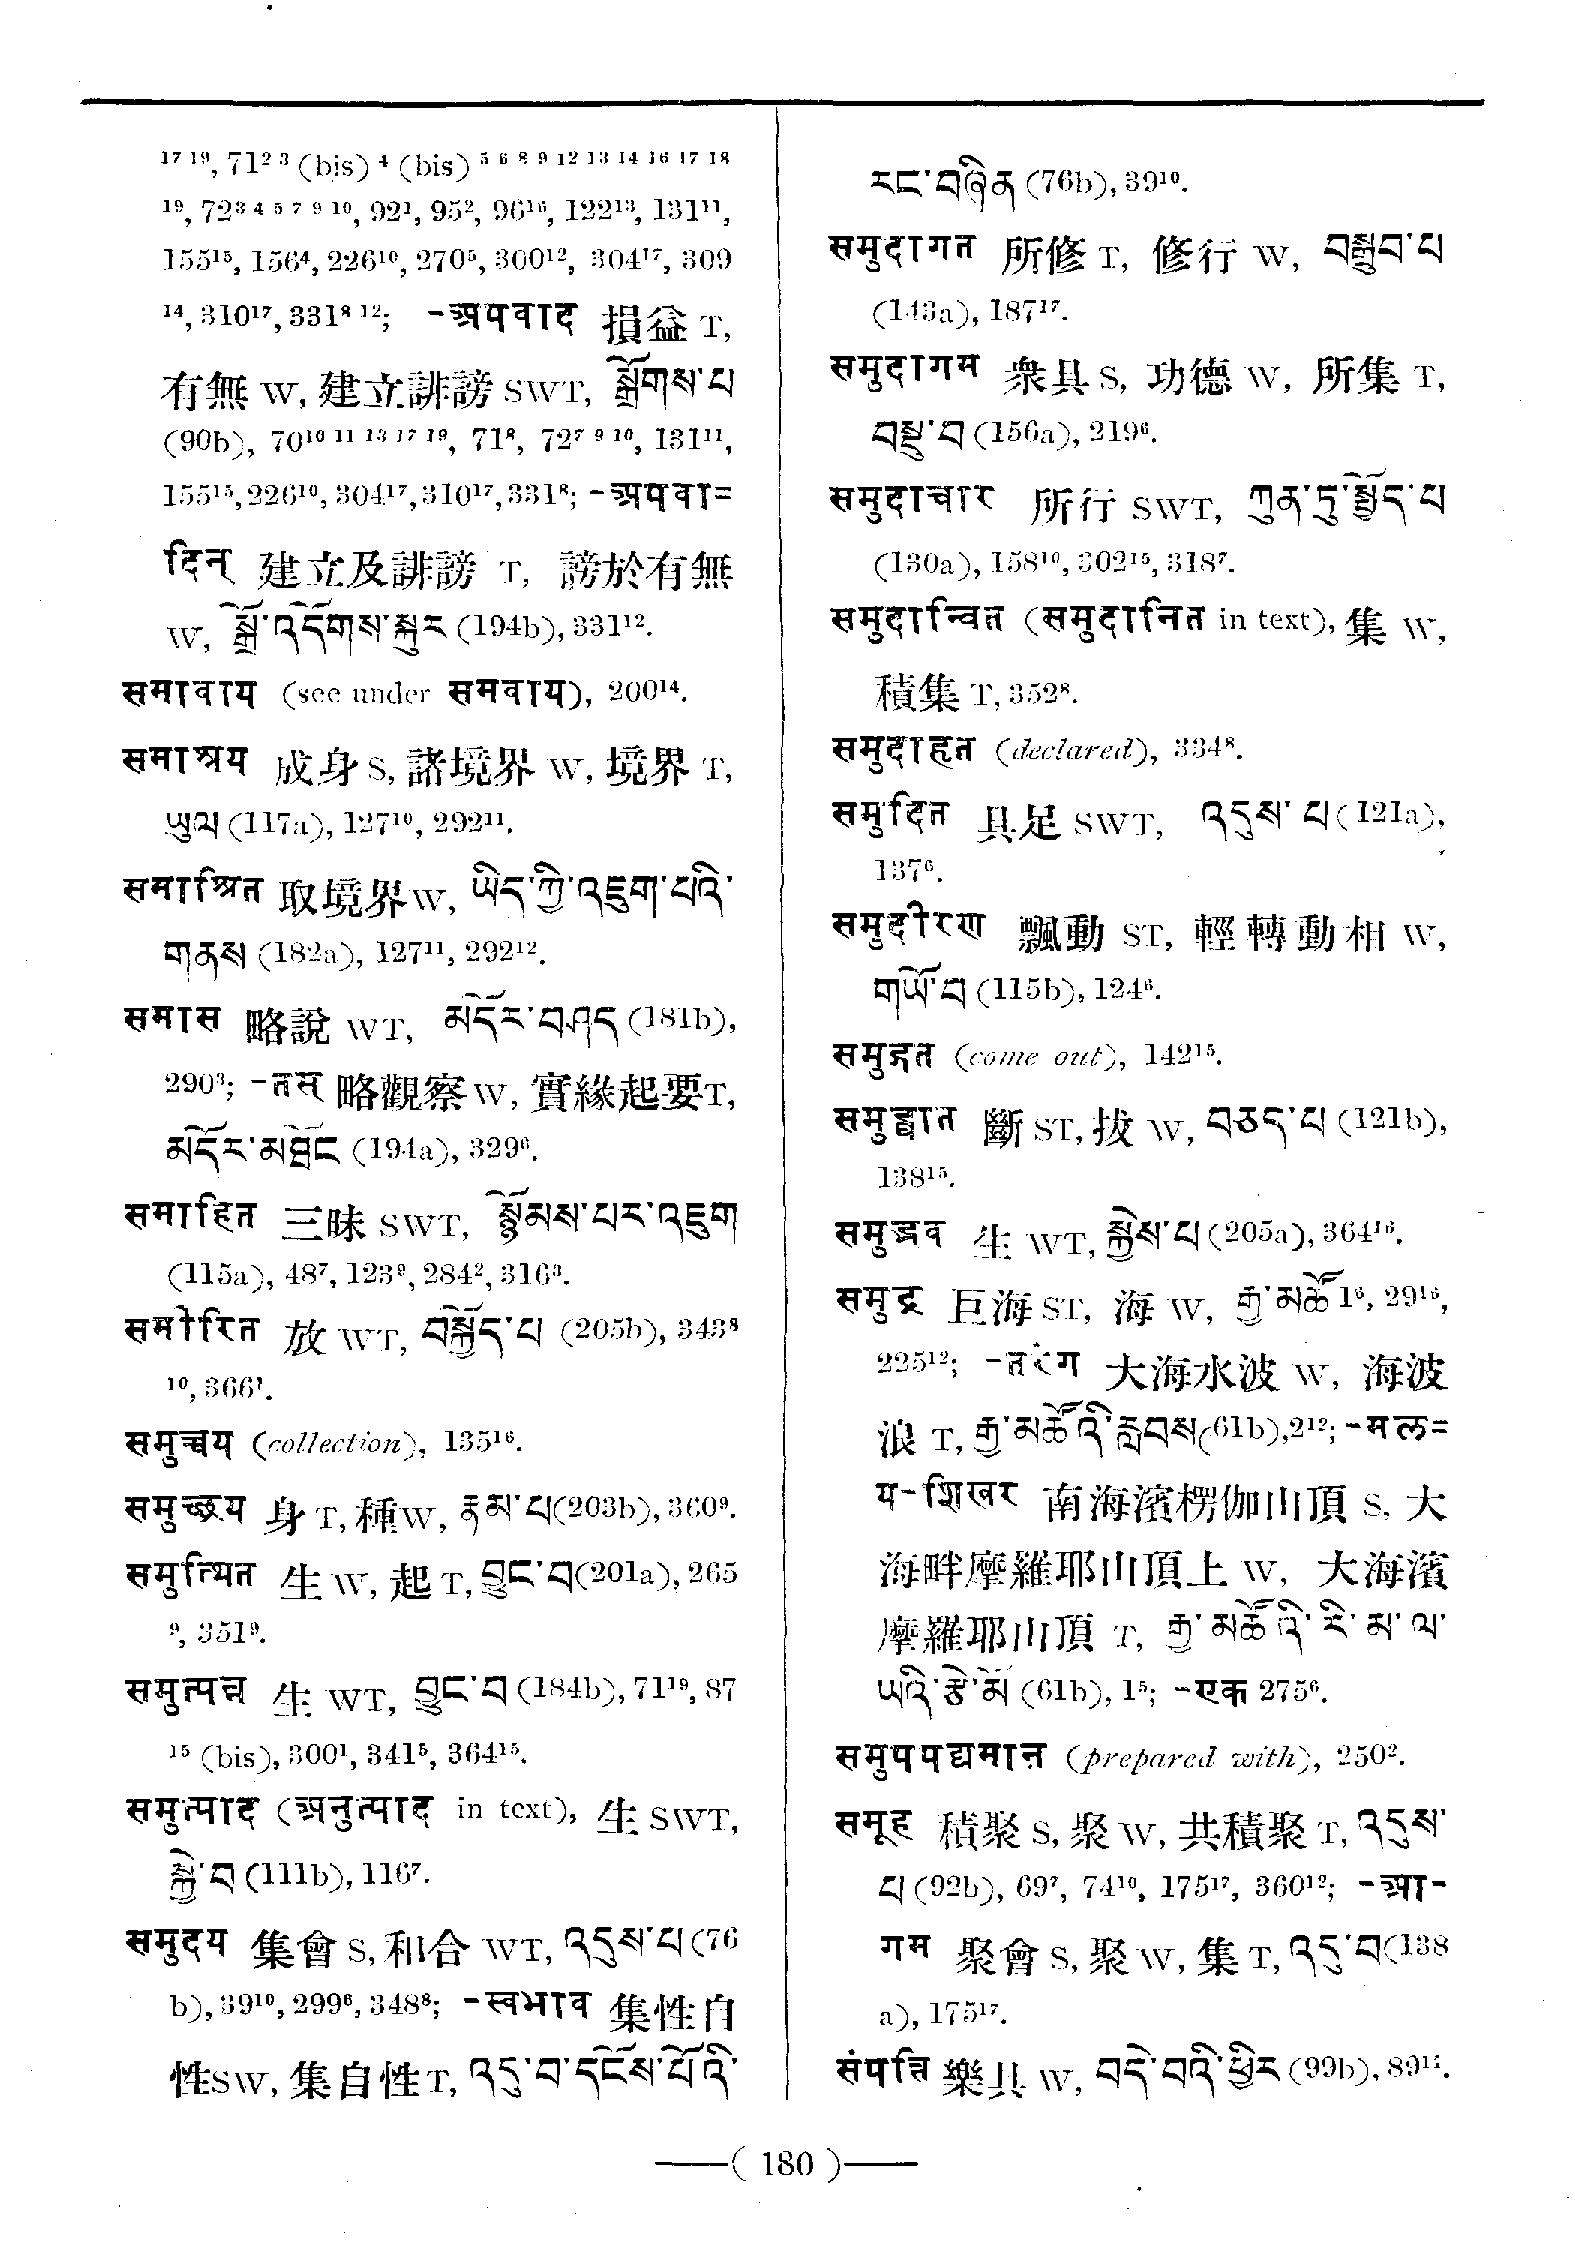 ¹⁷ ¹⁹, 71² ³ (bis) ⁴ (bis) ⁵ ⁶ ⁸ ⁹ ¹² ¹³ ¹⁴ ¹⁶ ¹⁷ ¹⁸
¹⁹, 72³ ⁴ ⁵ ⁷ ⁹ ¹⁰, 92¹, 95², 96¹⁶, 122¹³, 131¹¹,
155¹⁵, 156⁴, 226¹⁰, 270⁵, 300¹², 304¹⁷, 309
¹⁴, 310¹⁷, 331⁸ ¹²; -अपवाद 損益 T,
有無 W, 建立誹謗 SWT, སྒྲོགས་པ
(90b), 70¹⁰ ¹¹ ¹³ ¹⁷ ¹⁹, 71⁸, 72⁷ ⁹ ¹⁰, 131¹¹,
155¹⁵, 226¹⁰, 304¹⁷, 310¹⁷, 331⁸; -अपवा=
दिन् 建立及誹謗 T, 謗於有無
W, སྒྲོ་འདོགས་སྐུར (194b), 331¹².
समावाय (see under समवाय), 200¹⁴.
समाश्रय 成身 S, 諸境界 W, 境界 T,
ཡུལ (117a), 127¹⁰, 292¹¹.
समाश्रित 取境界 W, ཡིད་ཀྱི་འཇུག་པའི་
གནས (182a), 127¹¹, 292¹².
समास 略說 WT, མདོར་བཤད (181b),
290³; -तस् 略觀察 W, 實緣起要 T,
མདོར་མཐོང (194a), 329⁶.
समाहित 三昧 SWT, སྙོམས་པར་འཇུག
(115a), 48⁷, 123⁹, 284², 316³.
समीरित 放 WT, བསྐྱོད་པ (205b), 343⁸
¹⁰, 366¹.
समुच्चय (collection), 135¹⁶.
समुच्छ्रय 身 T, 種 W, རྣམ་པ (203b), 360⁹.
समुत्थित 生 W, 起 T, བྱུང་བ (201a), 265
⁹, 351⁹.
समुत्पन्न 生 WT, བྱུང་བ (184b), 71¹⁹, 87
¹⁵ (bis), 300¹, 341⁵, 364¹⁵.
समुत्पाद (अनुत्पाद in text), 生 SWT,
སྐྱེ་བ (111b), 116⁷.
समुदय 集會 S, 和合 WT, འདུས་པ (76
b), 39¹⁰, 299⁶, 348⁸; -स्वभाव 集性自
性 SW, 集自性 T, འདུ་བ་དངོས་པོའི་
རང་བཞིན (76b), 39¹⁰.
समुदागत 所修 T, 修行 W, བསྒྲུབ་པ
(143a), 187¹⁷.
समुदागम 衆具 S, 功德 W, 所集 T,
བསྡུ་བ (156a), 219⁶.
समुदाचार 所行 SWT, ཀུན་ཏུ་སྤྱོད་པ
(130a), 158¹⁰, 302¹⁵, 318⁷.
समुदान्वित (समुदानित in text), 集 W,
積集 T, 352⁸.
समुदाहृत (declared), 334⁸.
समुदित 具足 SWT, འདུས་པ (121a),
137⁶.
समुदीरण 飄動 ST, 輕轉動相 W,
གཡོ་བ (115b), 124⁶.
समुद्गत (come out), 142¹⁵.
समुद्घात 斷 ST, 拔 W, བཅད་པ (121b),
138¹⁵.
समुद्भव 生 WT, སྐྱེས་པ (205a), 364¹⁶.
समुद्र 巨海 ST, 海 W, རྒྱ་མཚོ 1⁶, 29¹⁶,
225¹²; -तरंग 大海水波 W, 海波
浪 T, རྒྱ་མཚོའི་རླབས (61b), 2¹²; -मल=
य-शिखर 南海濱楞伽山頂 S, 大
海畔摩羅耶山頂上 W, 大海濱
摩羅耶山頂 T, རྒྱ་མཚོའི་རི་མ་ལ་
ཡའི་རྩེ་མོ (61b), 1⁵; -एक 275⁶.
समुपपद्यमान (prepared with), 250².
समूह 積聚 S, 聚 W, 共積聚 T, འདུས་
པ (92b), 69⁷, 74¹⁰, 175¹⁷, 360¹²; -आ-
गम 聚會 S, 聚 W, 集 T, འདུ་བ (138
a), 175¹⁷.
संपत्ति 樂具 W, བདེ་བའི་ཕྱིར (99b), 89¹⁴.
( 180 )